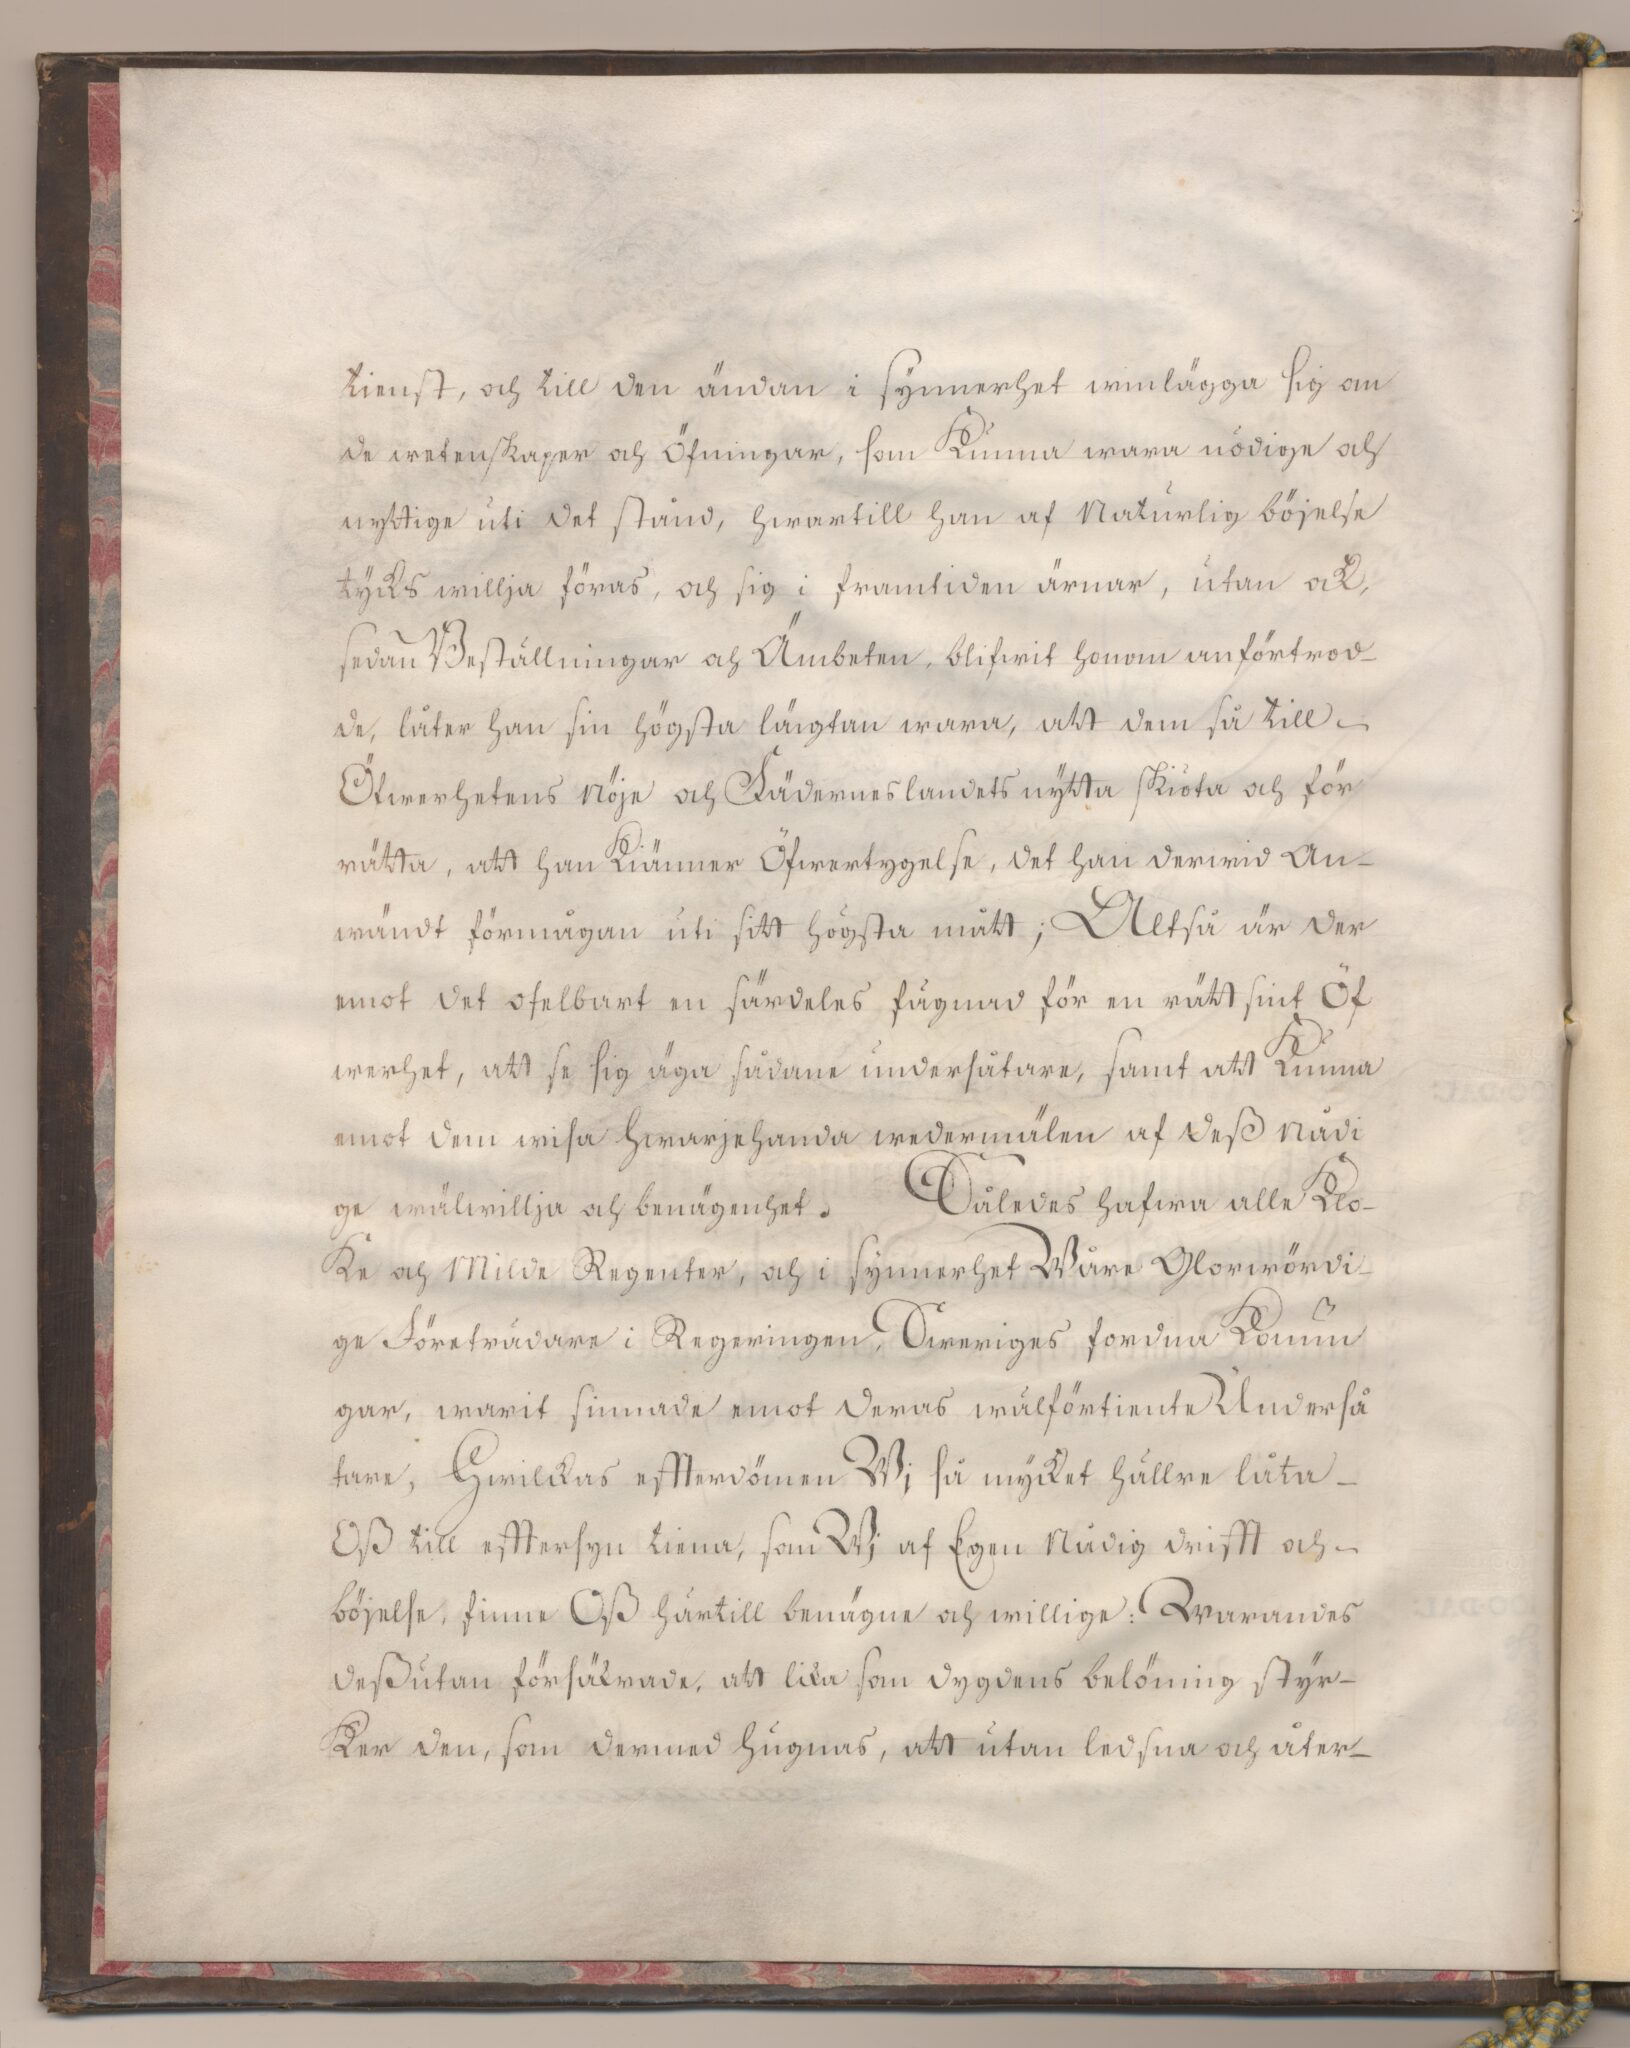 tienst, och till den ändan i synnerhet winlägga sig om
de wetenskaper och Öfningar, som Kunna wara nödige och
nyttige uti det stånd, hwartill han af Naturlig böjelse
tycks willja föras, och sig i framtiden ärnar, utan ock,
sedan Beställningar och Ämbeten, blifwit honom anförtrod-
de, låter han sin högsta längtan wara, att dem så till
Öfwerhetens Nöje och Fäderneslandets nytta skiöta och för
rätta, att han Kiänner Öfwertygelse, det han derwid An-
wändt förmågan uti sitt högsta mått; Altså är der
emot det ofelbart en särdeles fägnad för en rätt sint Öf
werhet, att se sig äga sådane undersåtare, samt att Kunna
emot dem wisa hwarjehanda wedermälen af deß Nådi
ge wälwillja och benägenhet. Således hafwa alle Klo-
Ke och Milde Regenter, och i synnerhet Wåre Glorwördi-
ge Företrädare i Regeringen, Sweriges fordna Konun
gar, warit sinnade emot deras wälförtiente Underså
tare, Hwilckas effterdömen Wj så mycket hällre låta
Oß till efftersyn tiena, som Wj af Egen Nådig drifft och
böjelse, finne Oß härtill benägne och willige: Warandes
deßutan försäkrade, att lika som dygdens belöning styr-
Ker den, som dermed hugnas, att utan ledsna och åter-